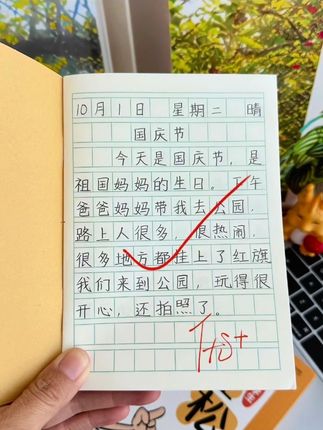 10月1日 星期二 晴
国庆节
今天是国庆节,是
祖国妈妈的生日。下午
爸爸妈妈带我去公园,
路上人很多,很热闹,
很多地方都挂上了红旗
我们来到公园,玩得很
开心,还拍照了。